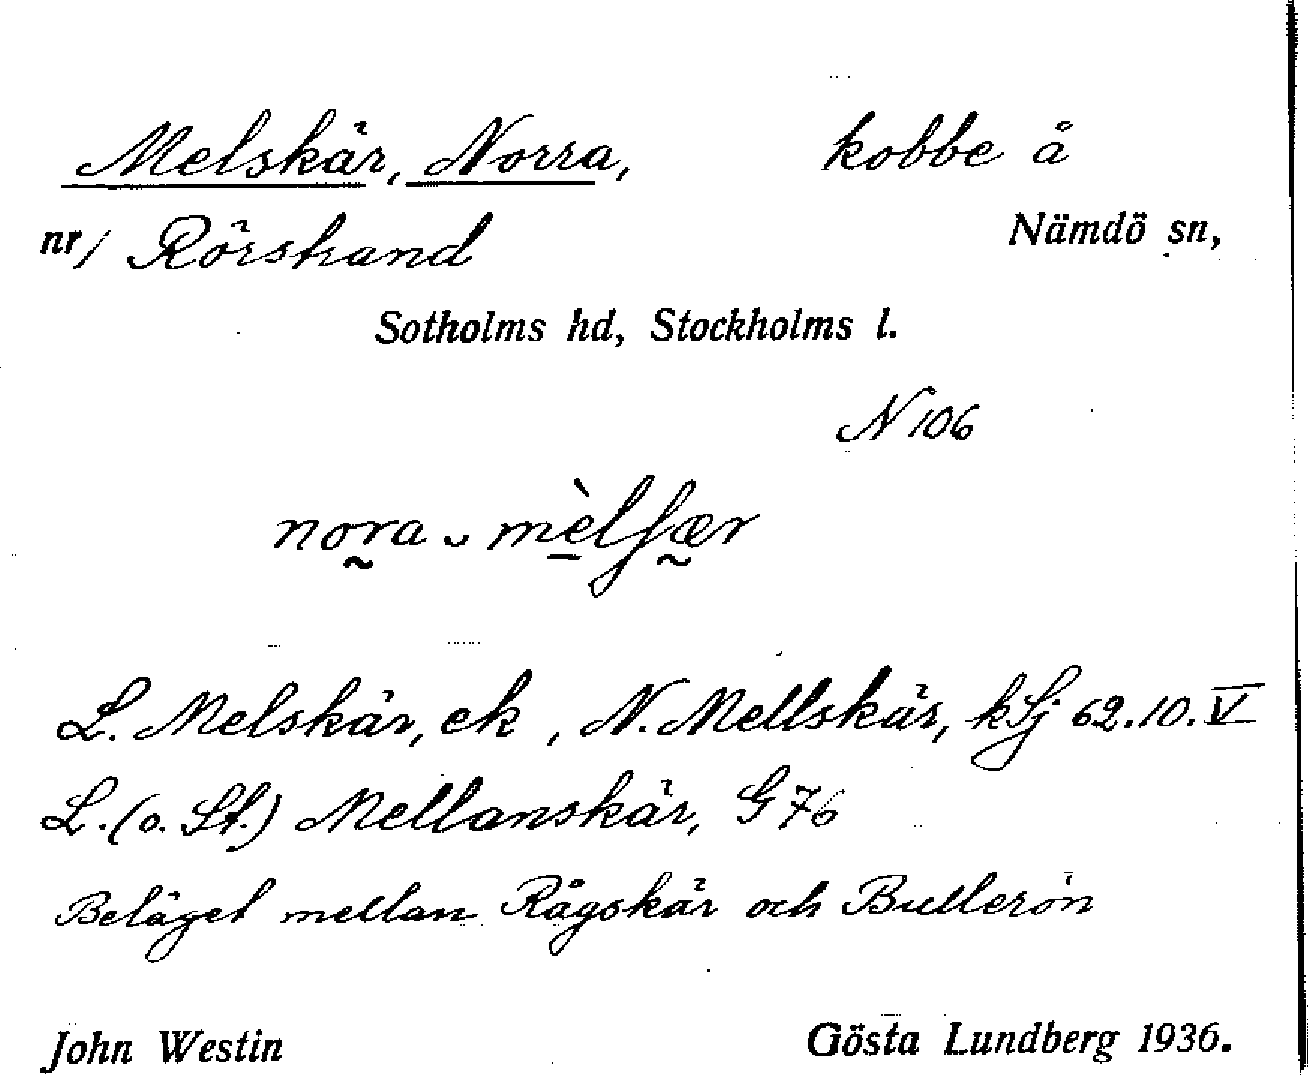 Melskär, Norra, kobbe å
nr/ Rörstrand Nämdö sn,
Sotholms hd, Stockholms l.
N 106
nora ᴗ mèlʃær
L. Melskär, ek, N. Mellskär, kSj 62.10.V
L. (o. St.) Mellanskär, G 76
Beläget mellan Rågskär och Bullerön
John Westin Gösta Lundberg 1936.